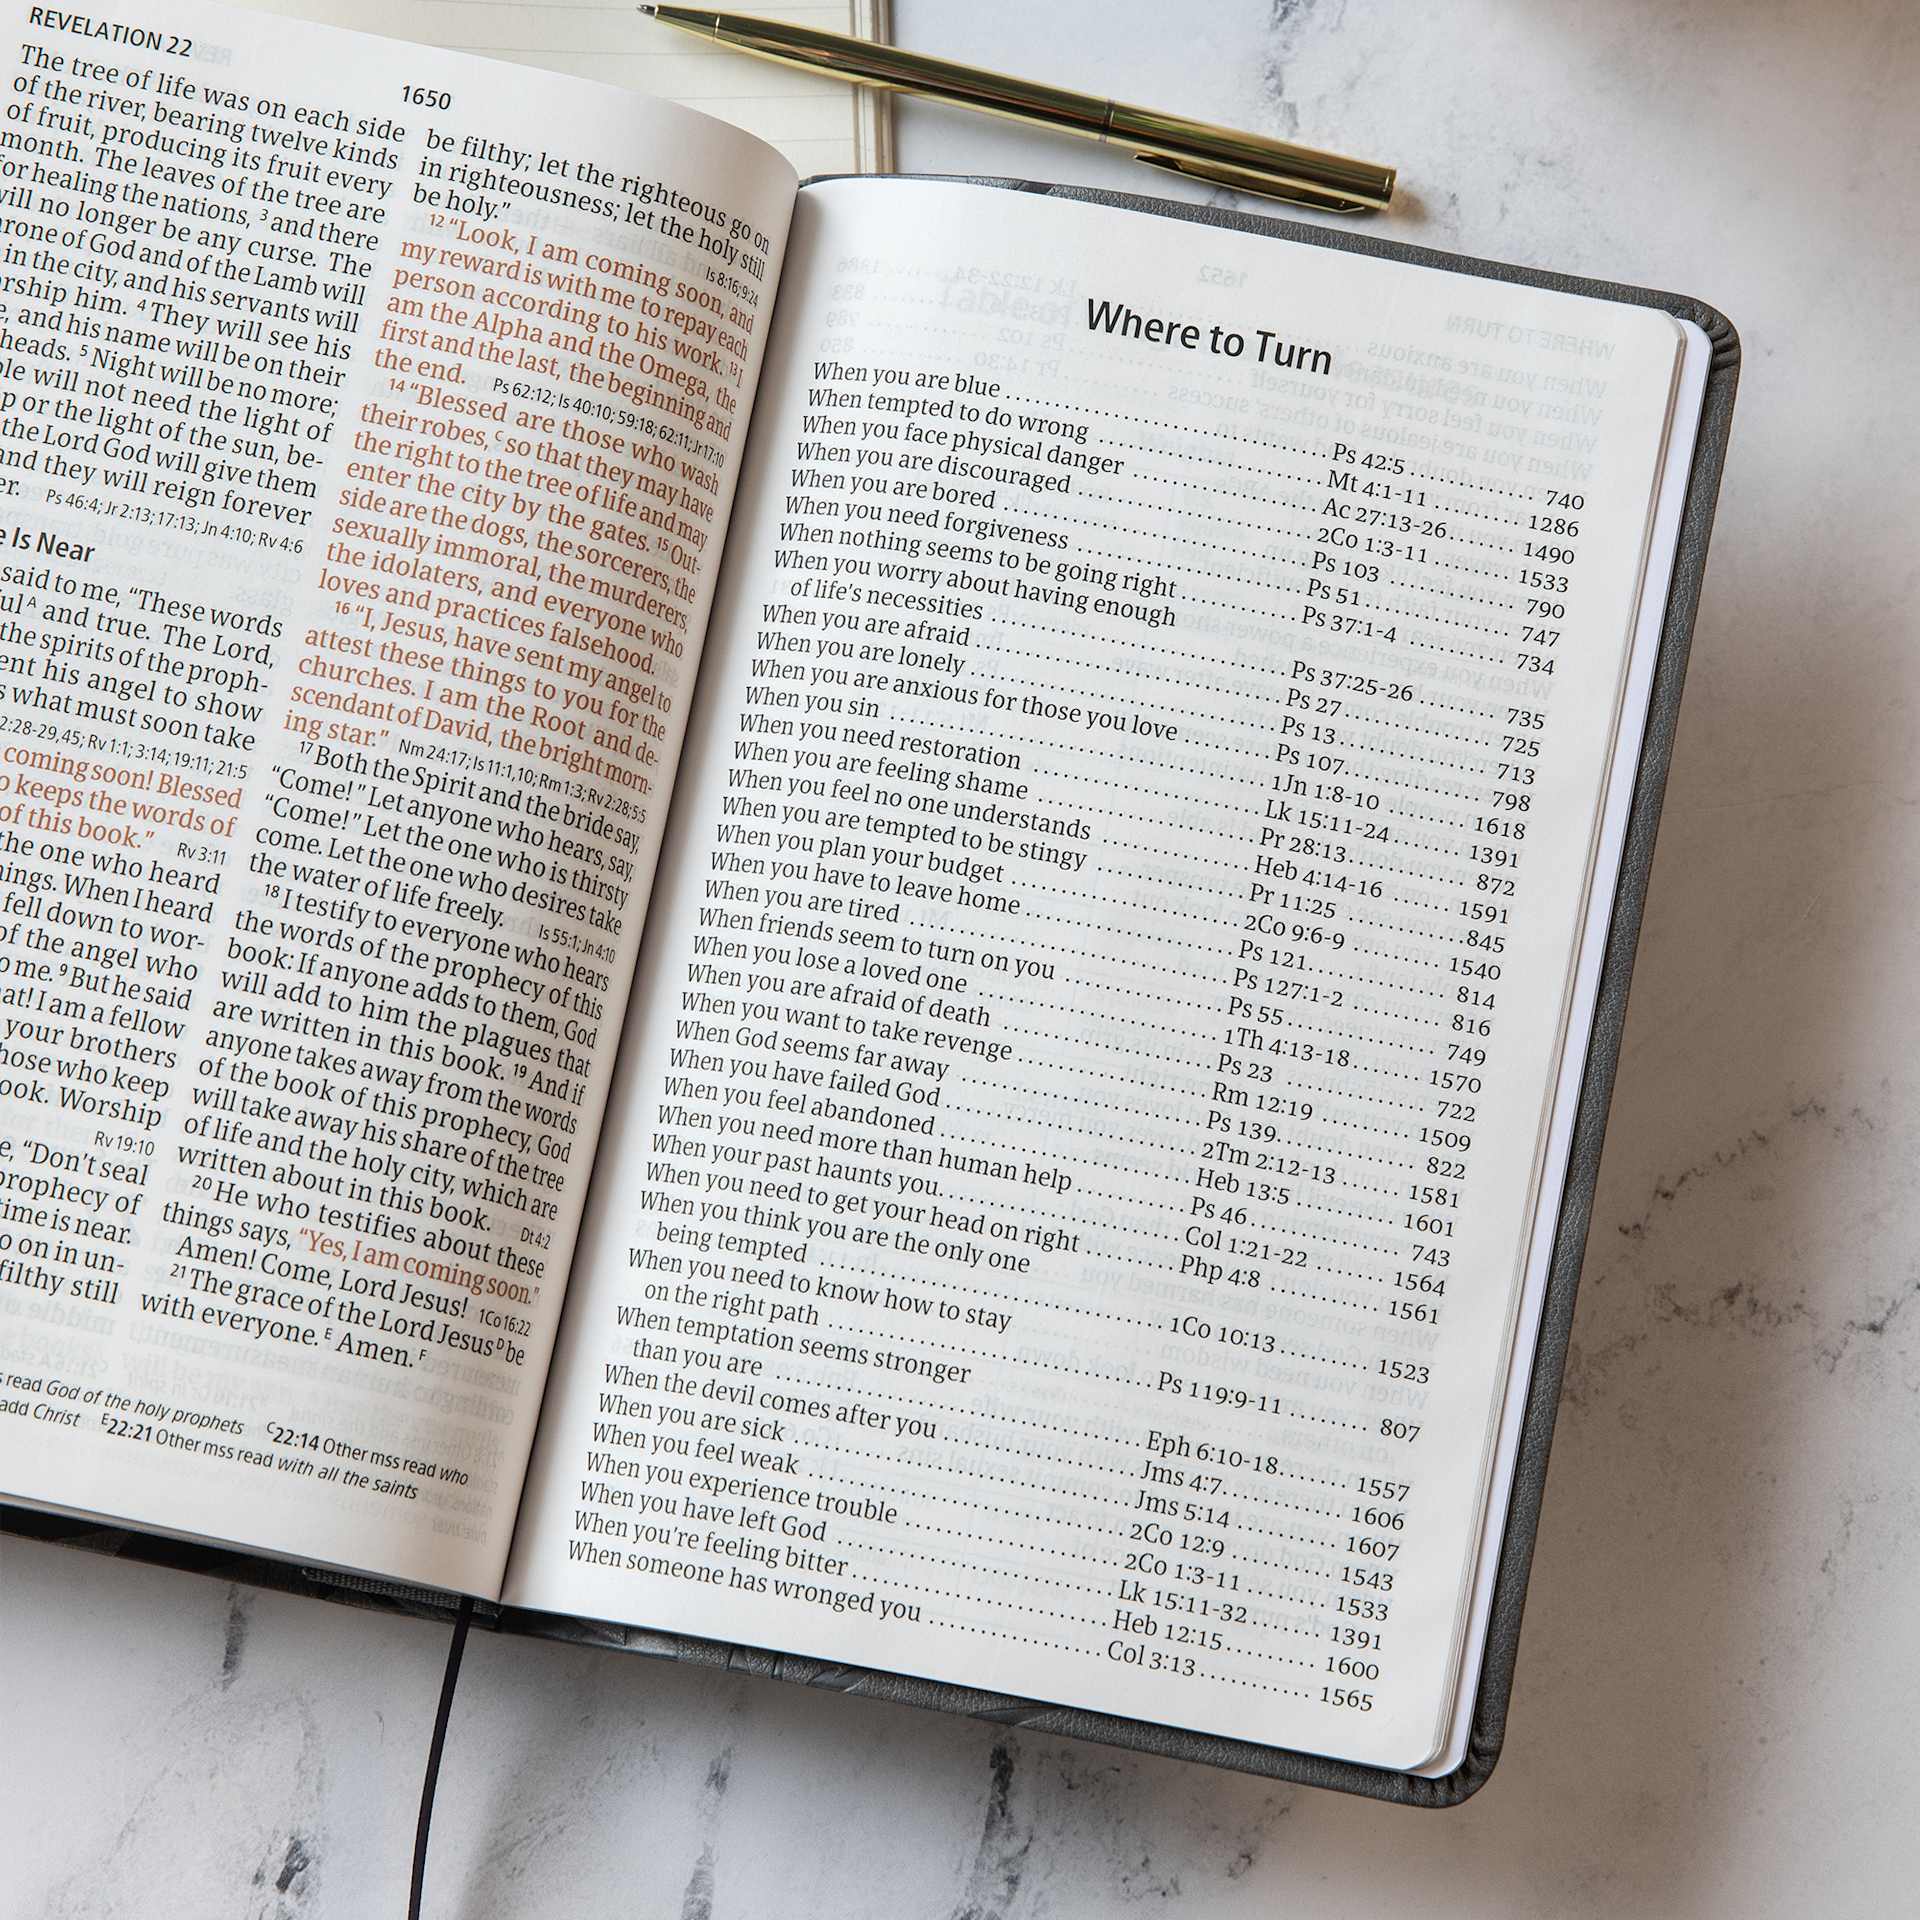 REVELATION 22
1650
The tree of life was on each side
of the river, bearing twelve kinds
of fruit, producing its fruit every
month. The leaves of the tree are
for healing the nations, ³ and there
will no longer be any curse. The
throne of God and of the Lamb will
in the city, and his servants will
worship him. ⁴ They will see his
, and his name will be on their
heads. ⁵ Night will be no more;
will not need the light of
or the light of the sun, be-
the Lord God will give them
and they will reign forever
Ps 46:4; Jr 2:13; 17:13; Jn 4:10; Rv 4:6
Is Near
said to me, “These words
ᴬ and true. The Lord,
the spirits of the proph-
sent his angel to show
what must soon take
2:28-29,45; Rv 1:1; 3:14; 19:11; 21:5
coming soon! Blessed
keeps the words of
of this book.” Rv 3:11
the one who heard
things. When I heard
fell down to wor-
of the angel who
me. ⁹ But he said
that! I am a fellow
your brothers
those who keep
book. Worship
Rv 19:10
“Don’t seal
prophecy of
time is near.
on in un-
filthy still
be filthy; let the righteous go on
in righteousness; let the holy still
be holy.” Is 8:16; 9:24
¹² “Look, I am coming soon, and
my reward is with me to repay each
person according to his work. ¹³ I
am the Alpha and the Omega, the
first and the last, the beginning and
the end. Ps 62:12; Is 40:10; 59:18; 62:11; Jr 17:10
¹⁴ “Blessed are those who wash
their robes, ᶜ so that they may have
the right to the tree of life and may
enter the city by the gates. ¹⁵ Out-
side are the dogs, the sorcerers, the
sexually immoral, the murderers,
the idolaters, and everyone who
loves and practices falsehood.
¹⁶ “I, Jesus, have sent my angel to
attest these things to you for the
churches. I am the Root and de-
scendant of David, the bright morn-
ing star.” Nm 24:17; Is 11:1,10; Rm 1:3; Rv 2:28; 5:5
¹⁷ Both the Spirit and the bride say,
“Come!” Let anyone who hears, say,
“Come!” Let the one who is thirsty
come. Let the one who desires take
the water of life freely. Is 55:1; Jn 4:10
¹⁸ I testify to everyone who hears
the words of the prophecy of this
book: If anyone adds to them, God
will add to him the plagues that
are written in this book. ¹⁹ And if
anyone takes away from the words
of the book of this prophecy, God
will take away his share of the tree
of life and the holy city, which are
written about in this book. Dt 4:2
²⁰ He who testifies about these
things says, “Yes, I am coming soon.”
Amen! Come, Lord Jesus! 1Co 16:22
²¹ The grace of the Lord Jesus ᴰ be
with everyone. ᴱ Amen. ᶠ
read God of the holy prophets ᶜ22:14 Other mss read who
add Christ ᴱ22:21 Other mss read with all the saints
Where to Turn
When you are blue ........ Ps 42:5 ........ 740
When tempted to do wrong ........ Mt 4:1-11 ........ 1286
When you face physical danger ........ Ac 27:13-26 ........ 1490
When you are discouraged ........ 2Co 1:3-11 ........ 1533
When you are bored ........ Ps 103 ........ 790
When you need forgiveness ........ Ps 51 ........ 747
When nothing seems to be going right ........ Ps 37:1-4 ........ 734
When you worry about having enough
of life’s necessities ........ Ps 37:25-26 ........ 735
When you are afraid ........ Ps 27 ........ 725
When you are lonely ........ Ps 13 ........ 713
When you are anxious for those you love ........ Ps 107 ........ 798
When you sin ........ 1Jn 1:8-10 ........ 1618
When you need restoration ........ Lk 15:11-24 ........ 1391
When you are feeling shame ........ Pr 28:13 ........ 872
When you feel no one understands ........ Heb 4:14-16 ........ 1591
When you are tempted to be stingy ........ Pr 11:25 ........ 845
When you plan your budget ........ 2Co 9:6-9 ........ 1540
When you have to leave home ........ Ps 121 ........ 814
When you are tired ........ Ps 127:1-2 ........ 816
When friends seem to turn on you ........ Ps 55 ........ 749
When you lose a loved one ........ 1Th 4:13-18 ........ 1570
When you are afraid of death ........ Ps 23 ........ 722
When you want to take revenge ........ Rm 12:19 ........ 1509
When God seems far away ........ Ps 139 ........ 822
When you have failed God ........ 2Tm 2:12-13 ........ 1581
When you feel abandoned ........ Heb 13:5 ........ 1601
When you need more than human help ........ Ps 46 ........ 743
When your past haunts you ........ Col 1:21-22 ........ 1564
When you need to get your head on right ........ Php 4:8 ........ 1561
When you think you are the only one
being tempted ........ 1Co 10:13 ........ 1523
When you need to know how to stay
on the right path ........ Ps 119:9-11 ........ 807
When temptation seems stronger
than you are ........ Eph 6:10-18 ........ 1557
When the devil comes after you ........ Jms 4:7 ........ 1606
When you are sick ........ Jms 5:14 ........ 1607
When you feel weak ........ 2Co 12:9 ........ 1543
When you experience trouble ........ 2Co 1:3-11 ........ 1533
When you have left God ........ Lk 15:11-32 ........ 1391
When you’re feeling bitter ........ Heb 12:15 ........ 1600
When someone has wronged you ........ Col 3:13 ........ 1565